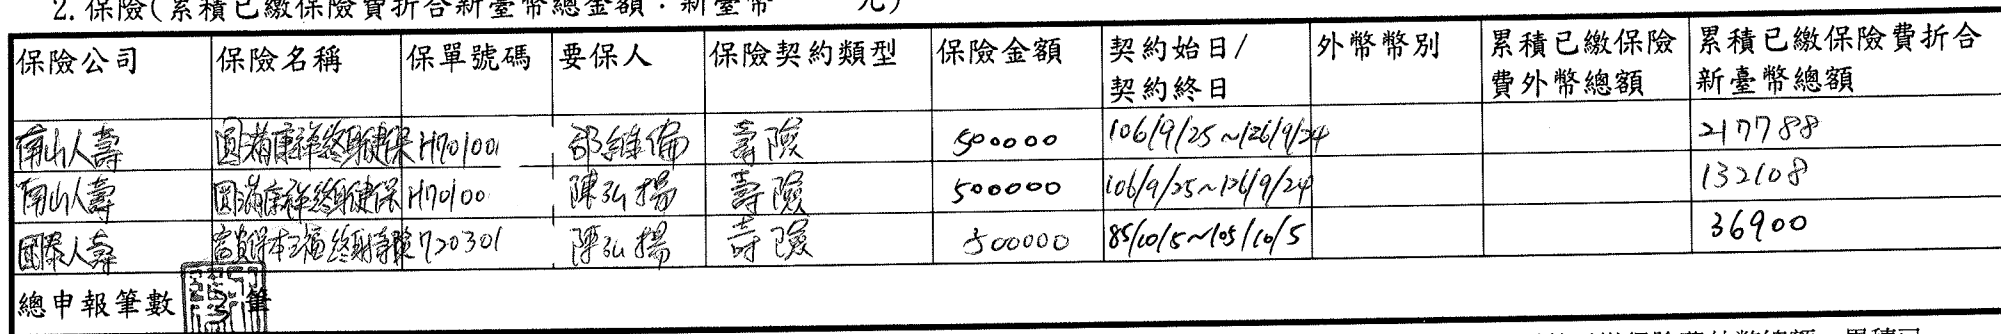 2. 保險(累積已繳保險費折合新臺幣總金額：新臺幣 元)
保險公司 保險名稱 保單號碼 要保人 保險契約類型 保險金額 契約始日/ 外幣幣別 累積已繳保險 累積已繳保險費折合
契約終日 費外幣總額 新臺幣總額
南山人壽 圓滿康祥終身健保 H70100 邵維倫 壽險 500000 106/9/25~126/9/24 217788
南山人壽 圓滿康祥終身健保 H70100 陳弘揚 壽險 500000 106/9/25~126/9/24 132108
國泰人壽 富貴保本三福終身壽險 720301 陳弘揚 壽險 500000 85/10/5~105/10/5 36900
總申報筆數 筆